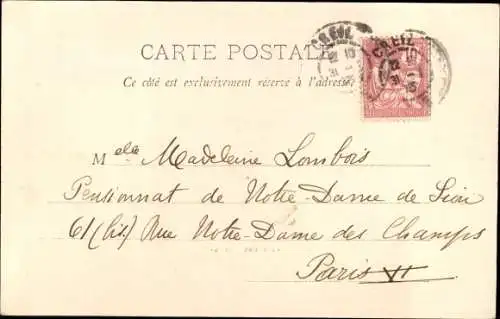 CREIL
CREIL
CARTE POSTALE
Ce côté est exclusivement réservé à l'adresse
Melle Madeleine Lombois
Pensionnat de Notre-Dame de Sion
61 (bis) Rue Notre-Dame des Champs
Paris VI